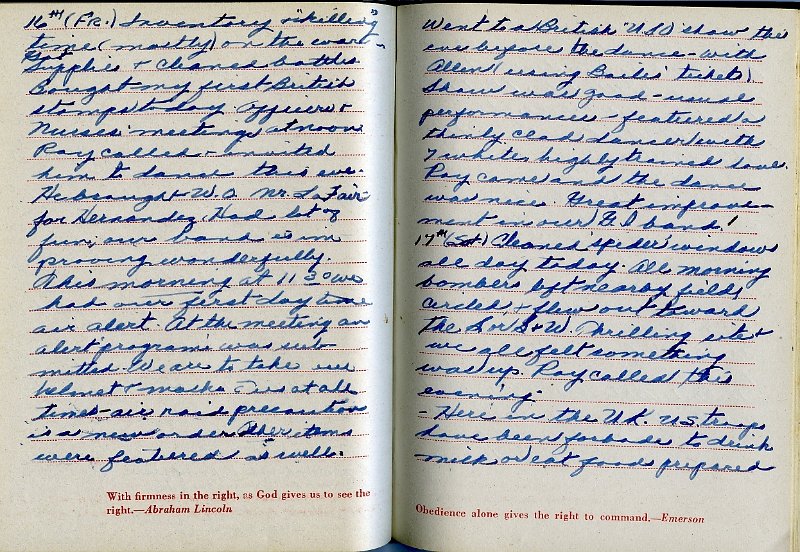 16TH (Fr.) Inventory + "killing"
time (mostly) on the ward -
Supplies + cleaned bottles
Bought my first British
stamps today. Officers +
Nurses meeting at noon
Ray called + invited
him to dance this eve.
He brought W.O. Mr. La Fair
for Hernandez. Had lot of
fun, our band is im
proving wonderfully.
This morning at 11 30 we
had our first day time
air alert. At the meeting an
alert program was sub-
mitted. We are to take our
helmet + masks us at all
times - air raid precaution
is a new order. Other items
were featured as well.
With firmness in the right, as God gives us to see the
right.—Abraham Lincoln
Went to a British "USO" show this
eve before the dance - with
Allen (using tickets)
Show was good - usual
performances - featured a
thinly clad dancer with
7 white highly trained doves.
Ray came and the dance
was nice. Great improve-
ment in our G.I band!
17TH (Sat) Cleaned 'spider' windows
all day today. All morning
bombers left nearby fields,
circled + flew out toward
the So + W. Thrilling site +
we all felt something
was up. Ray called this
evening.
- Here in the U.K. U.S. troops
have been forbade to drink
milk or eat food prepared
Obedience alone gives the right to command.—Emerson